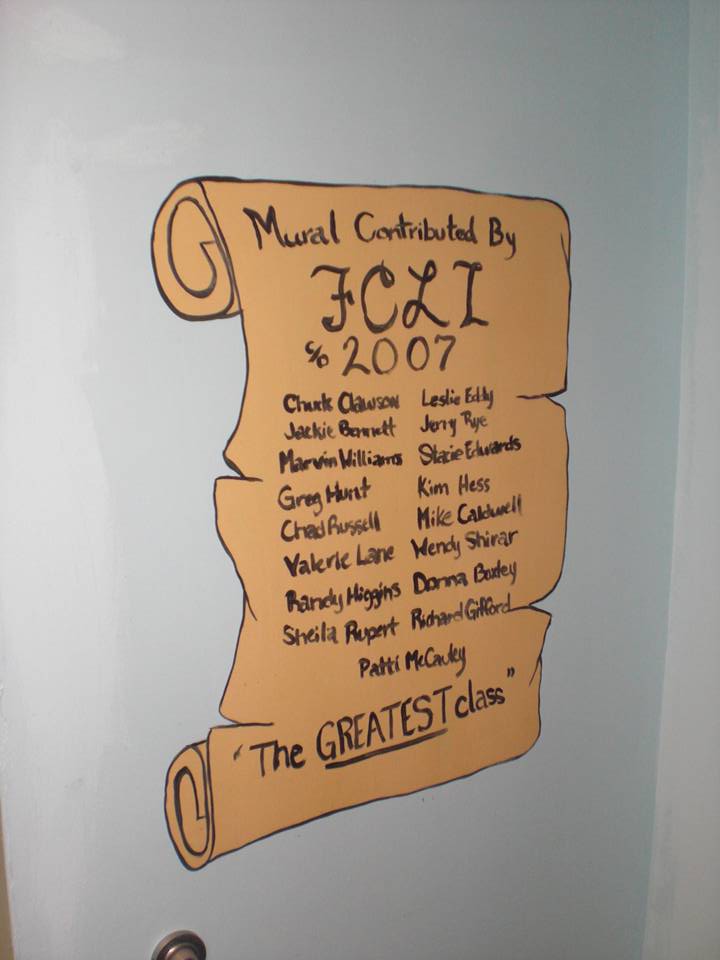 Mural Contributed By
FCLI
c/o 2007
Chuck Clawson Leslie Eddy
Jackie Bennett Jerry Rye
Marvin Williams Stacie Edwards
Greg Hunt Kim Hess
Chad Russell Mike Caldwell
Valerie Lane Wendy Shirar
Randy Higgins Donna Boxley
Sheila Rupert Richard Gifford
Patti McCauley
"The GREATEST class"